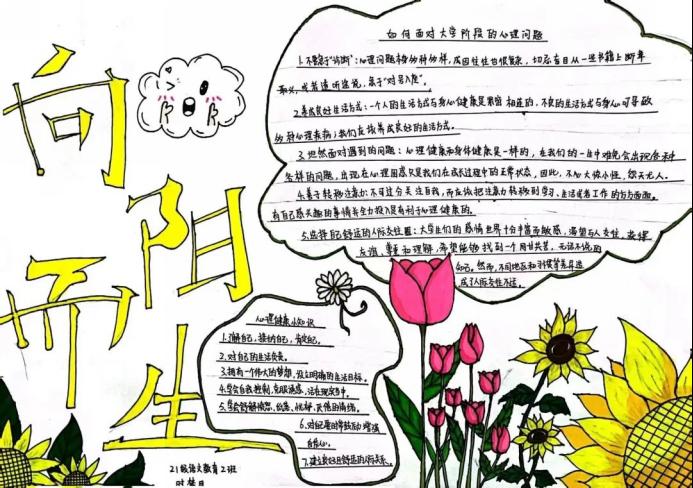 向阳而生
如何面对大学阶段的心理问题
1.不要急于"诊断":心理问题多种多样,成因往往也很复杂,切忌盲目从一些书籍上断章
取义,或者道听途说,急于"对号入座"。
2.养成良好生活方式:一个人的生活方式与身心健康是紧密相连的,不良的生活方式与身心可导致
多种心理疾病,我们应该养成良好的生活方式。
3.坦然面对遇到的问题:心理健康和身体健康是一样的,在我们的一生中难免会出现各种
各样的问题,出现在心理困惑只是我们在成长过程中的正常状态,因此,不必大惊小怪,怨天尤人。
4.善于转移注意力:不可过分关注自我,而应该把注意力转移到学习、生活或者工作的方方面面。
有自己感兴趣的事情并全力投入是有利于心理健康的。
5.选择自己舒适的人际交往位置:大学生们的感情世界十分丰富而敏感,渴望与人交往,获得
友谊、尊重和理解,希望能够找到一个同甘共苦、无话不说的
知己。然而,不同地区和
成了人际交往
心理健康小知识
1.了解自己,接纳自己,肯定自己。
2.对自己的生活负责。
3.拥有一个伟大的梦想,设立明确的生活目标。
4.学会自我控制,克服诱惑,活在现实当中。
5.学会舒解愤怒、仇恚、忧郁、其他的情绪。
6.对
自信心。
7.建立良好且舒适的人际关系。
21级语文教育2班